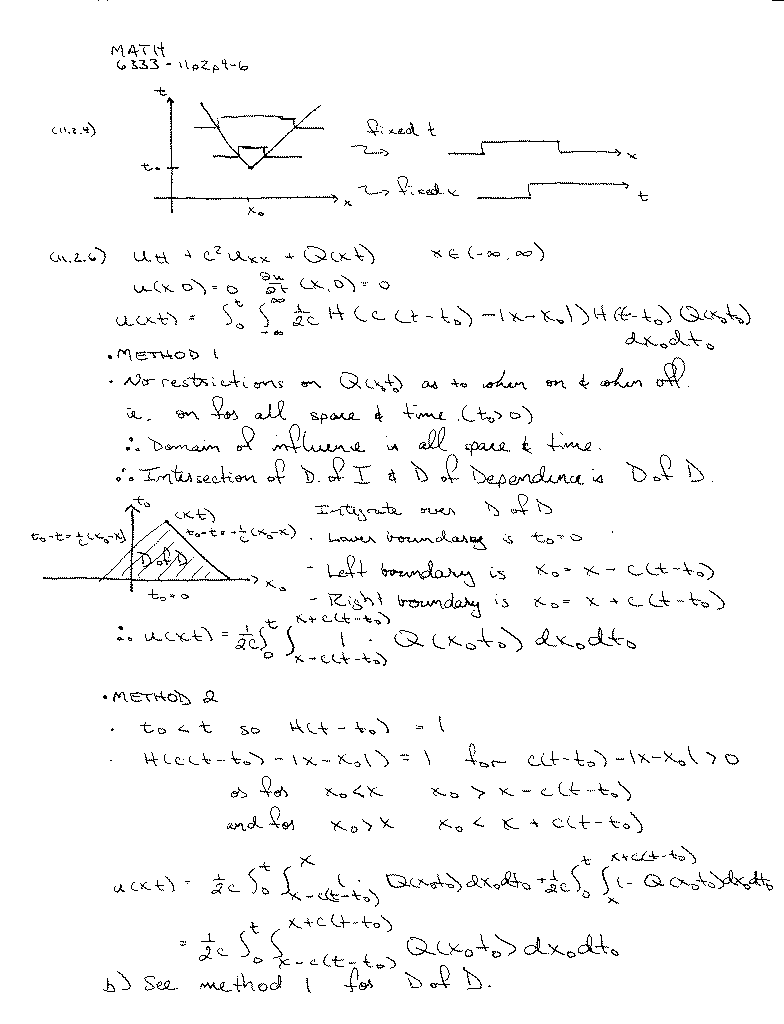 MATH
6333 - 11p2p4-6
(11.2.4)
t
t₀
x₀
x
fixed t
x
fixed x
t
(11.2.6) utt + c² uxx + Q(xt) x ∈ (-∞, ∞)
u(x 0) = 0 ∂u/∂t (x, 0) = 0
u(xt) = ∫₀ᵗ ∫₋∞^∞ 1/2c H(c(t-t₀) - |x-x₀|) H(t-t₀) Q(x₀t₀) dx₀dt₀
• METHOD 1
• No restrictions on Q(x,t) as to when on & when off.
ie. on for all space & time. (t₀>0)
∴ Domain of influence is all space & time.
∴ Intersection of D. of I & D of Dependence is D of D.
t₀
(xt)
Integrate over D of D
t₀-t = 1/c (x₀-x)
t₀-t = -1/c (x₀-x)
D of D
t₀ = 0
x₀
• Lower boundary is t₀ = 0
- Left boundary is x₀ = x - c(t-t₀)
- Right boundary is x₀ = x + c(t-t₀)
∴ u(xt) = 1/2c ∫₀ᵗ ∫_{x-c(t-t₀)}^{x+c(t-t₀)} 1 · Q(x₀t₀) dx₀dt₀
• METHOD 2
• t₀ < t so H(t-t₀) = 1
• H(c(t-t₀) - |x-x₀|) = 1 for c(t-t₀) - |x-x₀| > 0
or for x₀<x x₀ > x - c(t-t₀)
and for x₀>x x₀ < x + c(t-t₀)
u(xt) = 1/2c ∫₀ᵗ ∫_{x-c(t-t₀)}^{x} 1 · Q(x₀t₀) dx₀dt₀ + 1/2c ∫₀ᵗ ∫_{x}^{x+c(t-t₀)} 1 · Q(x₀t₀) dx₀dt₀
= 1/2c ∫₀ᵗ ∫_{x-c(t-t₀)}^{x+c(t-t₀)} Q(x₀t₀) dx₀dt₀
b) See method 1 for D of D.